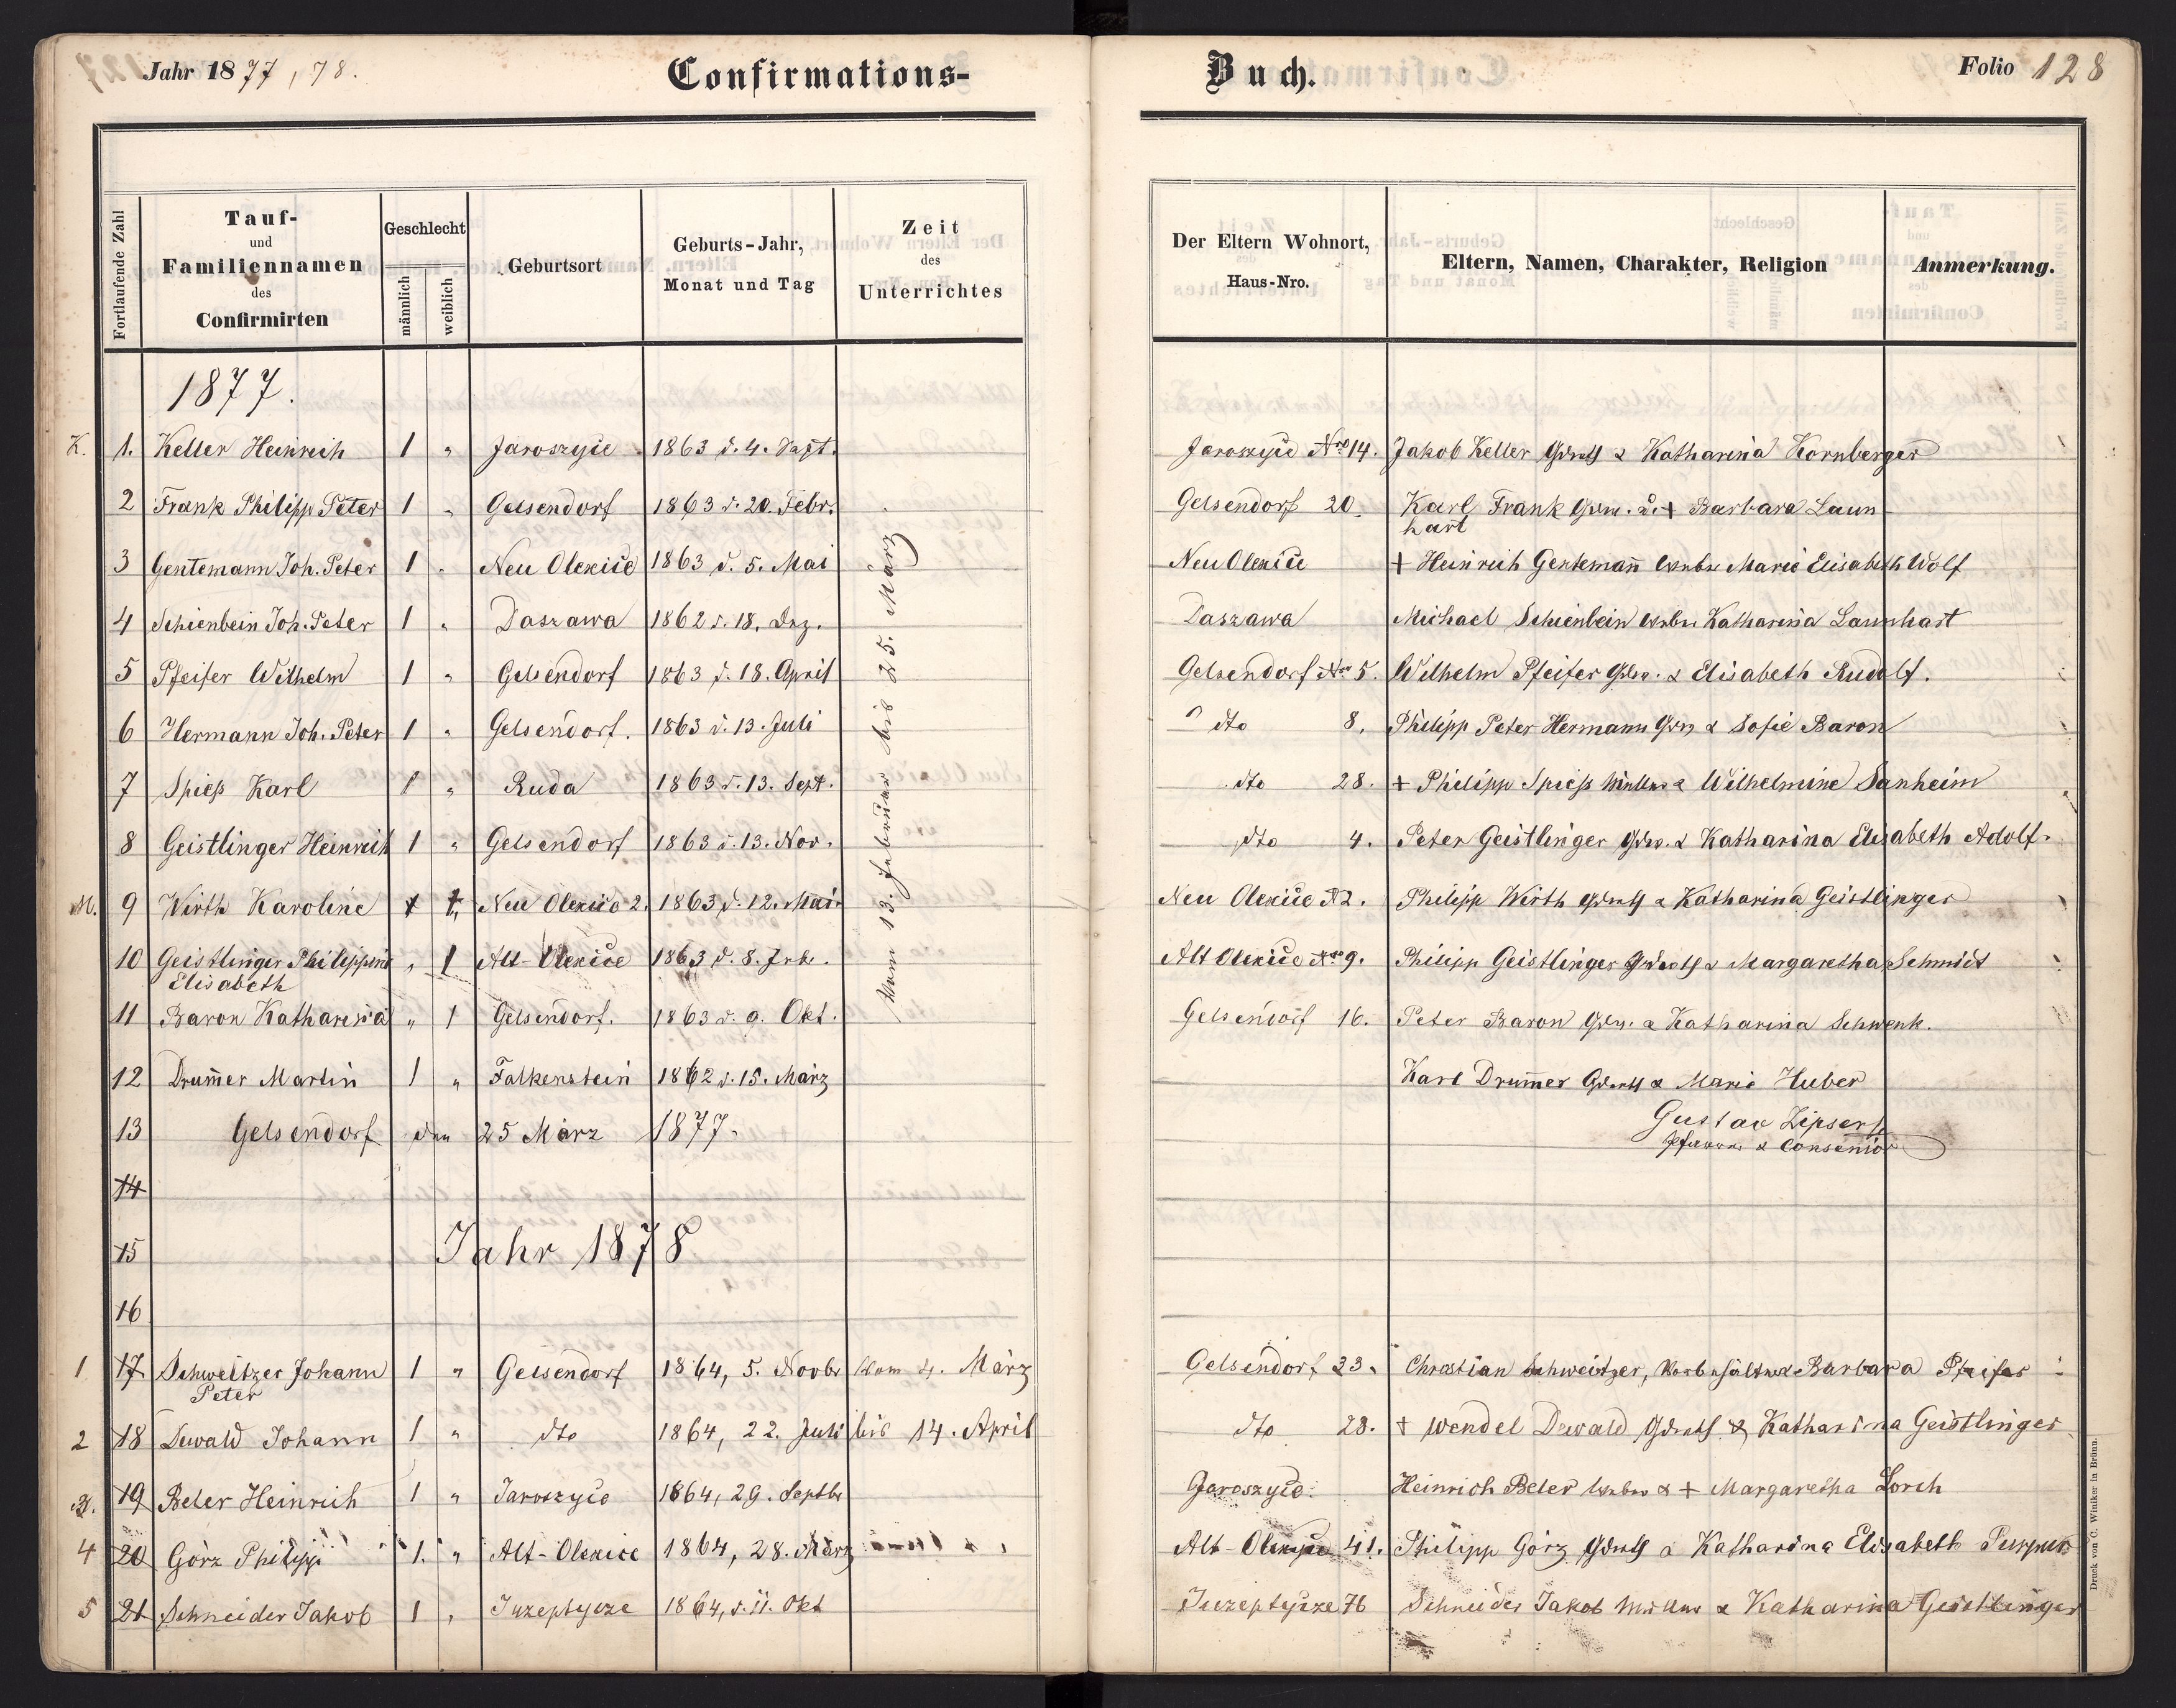 Jahr 1877, 78. Confirmations-
Buch. Folio 128
Fortlaufende Zahl
Tauf-
und
Familiennamen
des
Confirmirten
Geschlecht
männlich
weiblich
Geburtsort
Geburts-Jahr,
Monat und Tag
Zeit
des
Unterrichtes
Der Eltern Wohnort,
Haus-Nro.
Eltern, Namen, Charakter, Religion
Anmerkung.
1877.
K. 1. Keller Heinrich 1 " Jaroszyce 1863 d. 4. Sept. Jaroszyce Nro 14. Jakob Keller & Katharina Kornberger
2 Frank Philipp Peter 1 " Gelsendorf 1863 d. 20. Febr. Gelsendorf 20. Karl Frank + Barbara Laun
hart
3 Gentemann Joh. Peter 1 " Neu Olexice 1863 d. 5. Mai Neu Olexice + Heinrich Gentemañ Marie Elisabeth Wolf
4 Schienbein Joh. Peter 1 " Daszawa 1862 d. 18. Dez. Daszawa Michael Schienbein Katharina Launhart
5 Pfeifer Wilhelm 1 " Gelsendorf 1863 d. 18. April Gelsendorf Nro 5. Wilhelm Pfeifer & Elisabeth Rudolf.
6 Hermann Joh. Peter 1 " Gelsendorf. 1863 d. 13. Juli dto 8. Philipp Peter Hermann & Sofie Baron
7 Spieß Karl 1 " Ruda 1863 d. 13. Sept. dto 28. + Philipp Spieß & Wilhelmine Sanheim
8 Geistlinger Heinrich 1 " Gelsendorf 1863 d. 13. Nov. dto 4. Peter Geistlinger & Katharina Elisabeth Adolf.
M. 9 Wirth Karoline Neu Olexice 2. 1863 d. 12. Mai Neu Olexice N 2. Philipp Wirth & Katharina Geistlinger
10 Geistlinger Philippine " 1 Alt-Olexice 1863 d. 8. Alt Olexice Nro 9. Philipp Geistlinger & Margaretha Schmidt
Elisabeth
11 Baron Katharina " 1 Gelsendorf. 1863 d. 9. Okt. Gelsendorf 16. Peter Baron & Katharina Schwenk.
12 Drum̄er Martin 1 " Falkenstein 1862 d. 15. März Karl Drum̄er & Marie Huber
Vom 13. Februar bis 25. März
13 Gelsendorf den 25 März 1877. Gustav Zipser
Pfarrer & Consenior
14
15 Jahr 1878
16
1 17 Schweitzer Johann 1 " Gelsendorf 1864, 5. Novbr Vom 4. März Gelsendorf 23. Christian Schweitzer, & Barbara Pfeifer
Peter
2 18 Dewald Johann 1 " dto 1864, 22. Juli bis 14. April dto 28. + Wendel Dewald & Katharina Geistlinger
3. 19 Beler Heinrich 1 " Jaroszyce 1864, 29. Septbr Jaroszyce. Heinrich Beler & + Margaretha Lorch
4 20 Görz Philipp 1. " Alt-Olexice 1864, 28. März Alt-Olexice 41. Philipp Görz & Katharina Elisabeth
5 21 Schneider Jakob 1 " 1864, d. 11. Okt 76 Schneider Jakob & Katharina Geistlinger
Druck von C. Winiker in Brünn.